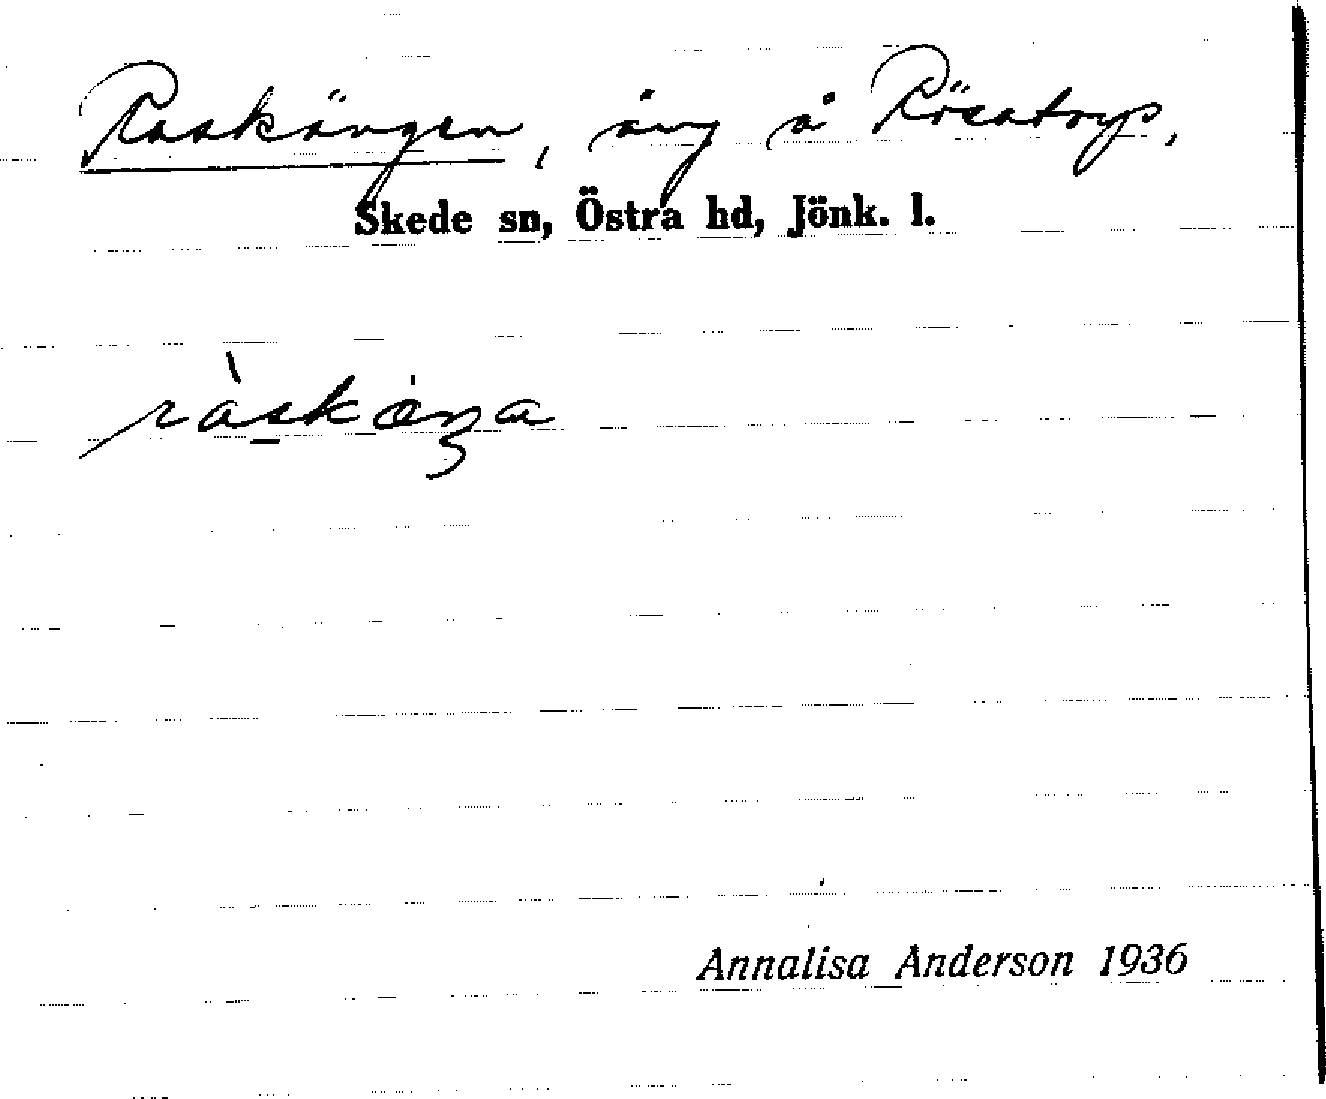 Raskängen, äng å Rösatorp,
Skede sn, Östra hd, Jönk. l.
Annalisa Anderson 1936